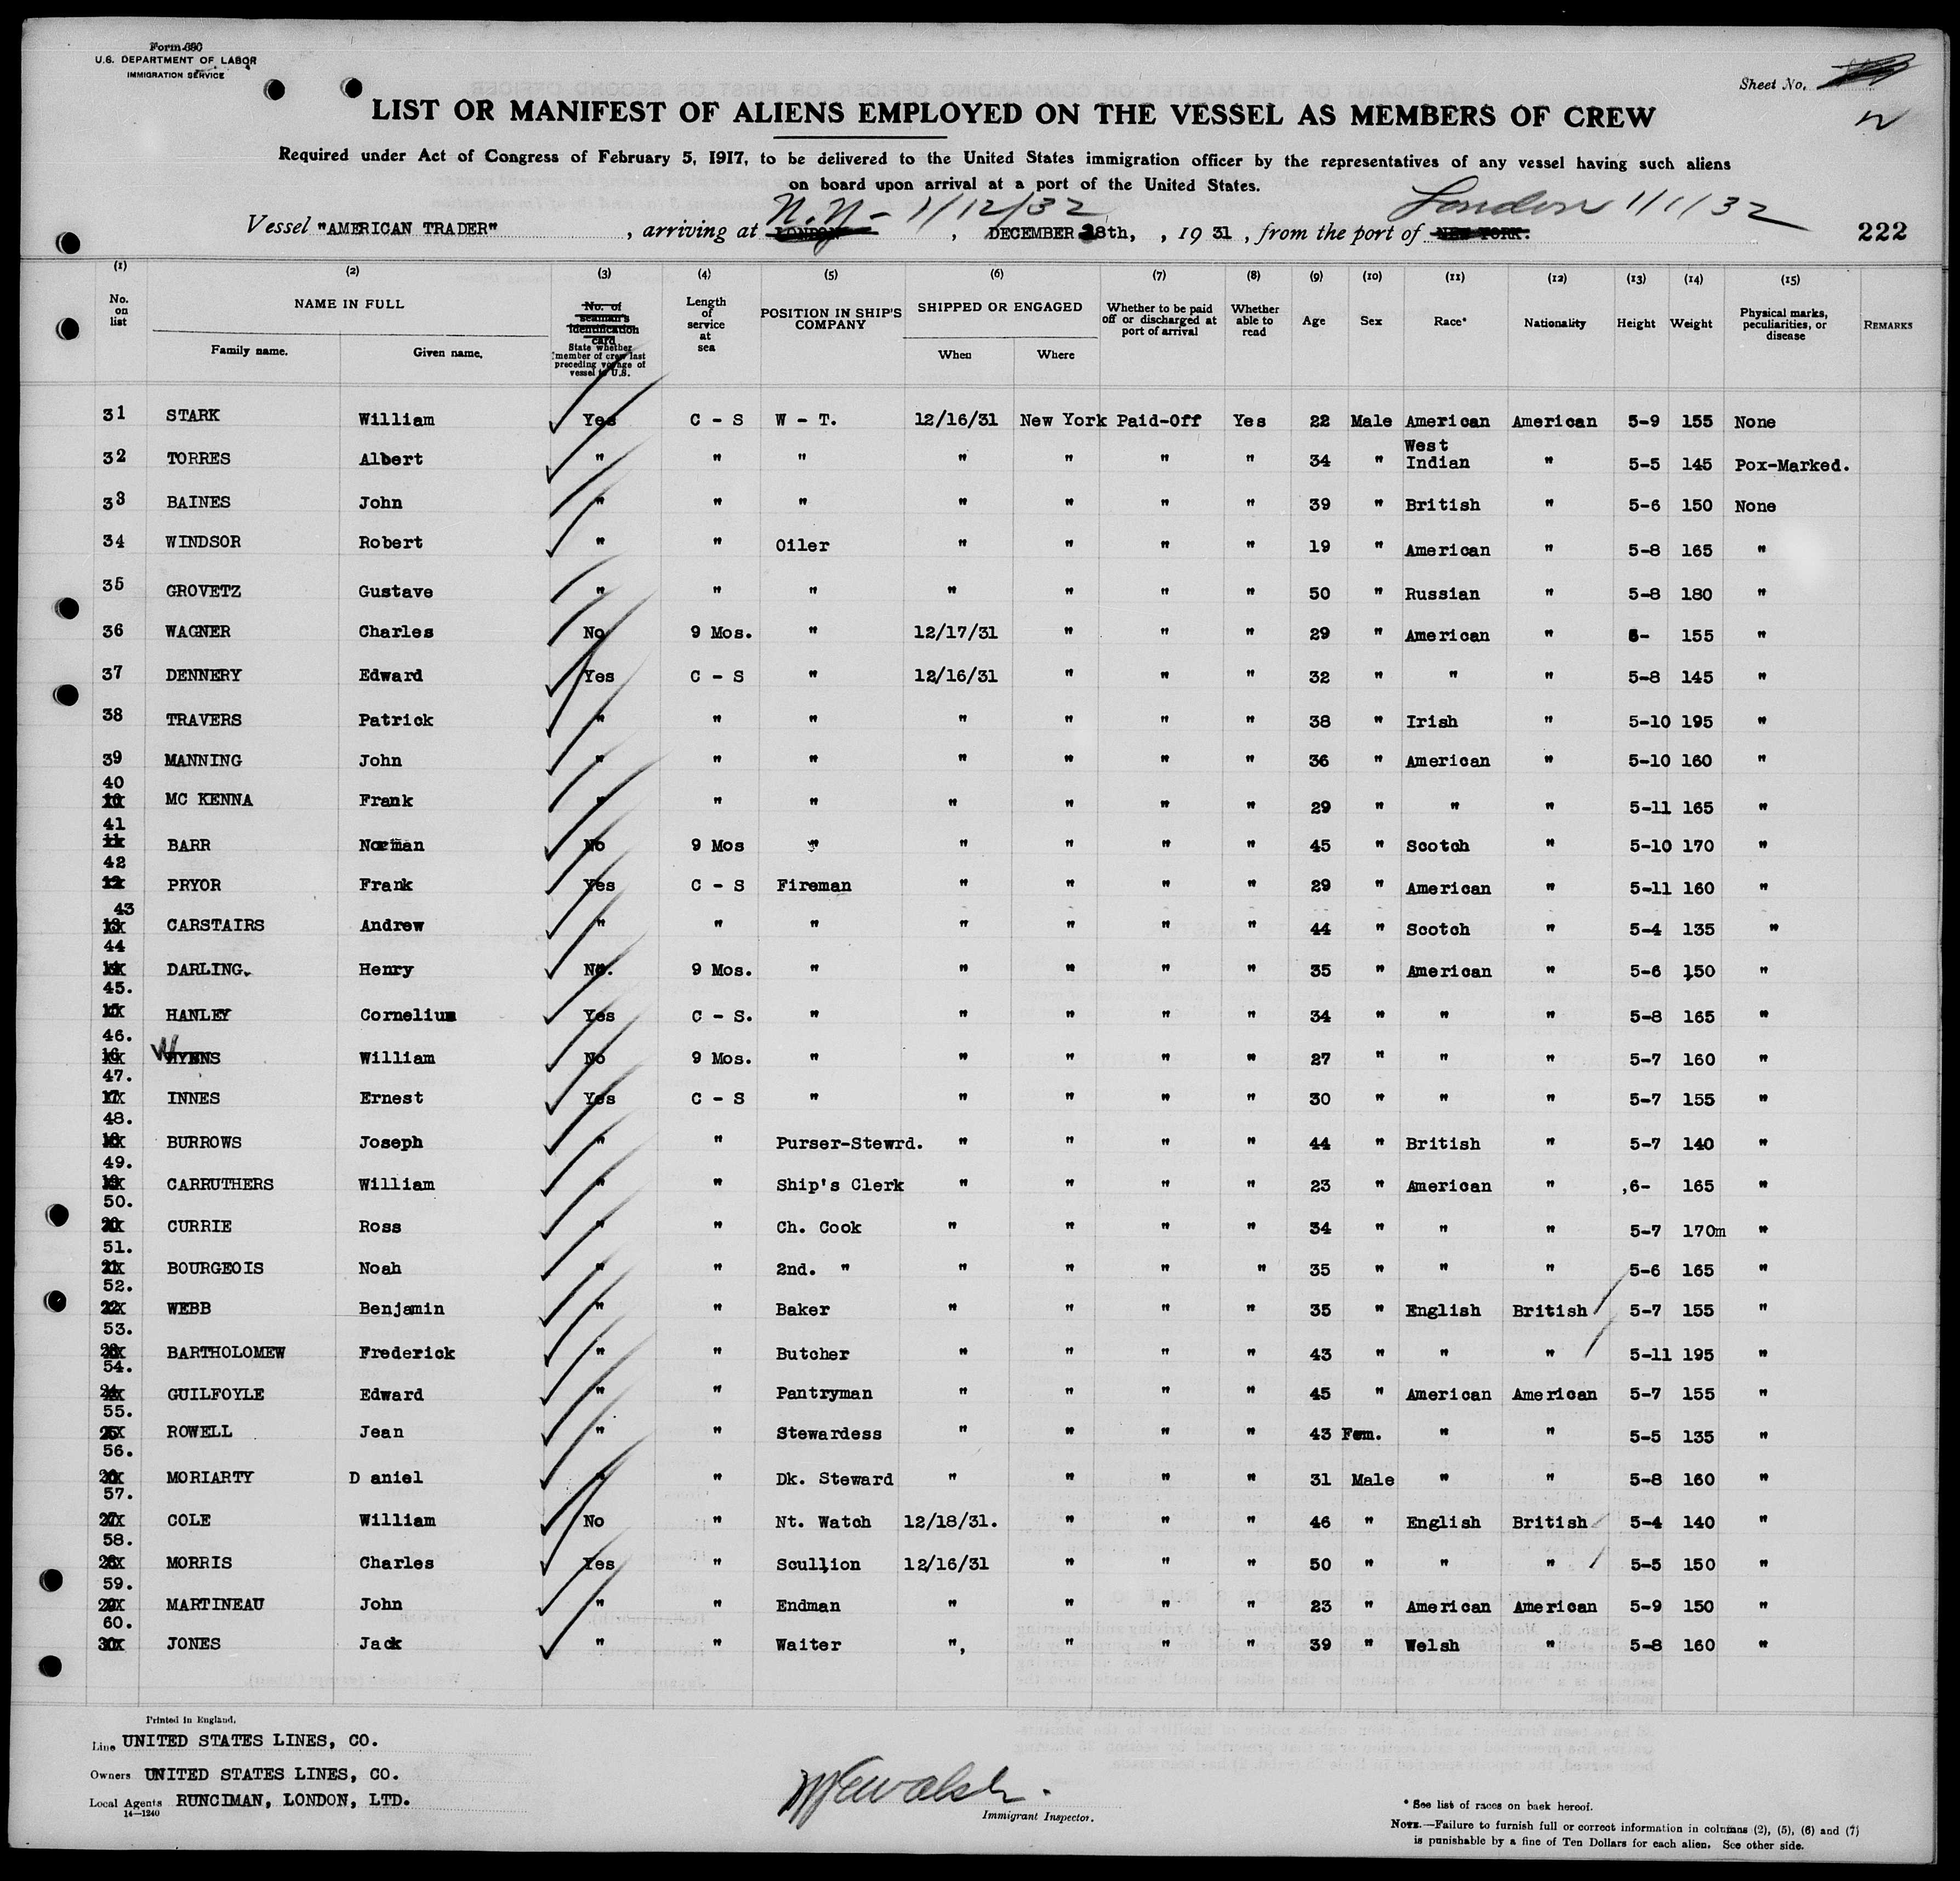 Form 680
U.S. DEPARTMENT OF LABOR
IMMIGRATION SERVICE
Sheet No.
LIST OR MANIFEST OF ALIENS EMPLOYED ON THE VESSEL AS MEMBERS OF CREW
Required under Act of Congress of February 5, 1917, to be delivered to the United States immigration officer by the representatives of any vessel having such aliens
on board upon arrival at a port of the United States.
N.Y- 1/12/32 London 1/1/32
Vessel "AMERICAN TRADER", arriving at LONDON, DECEMBER 28th, , 1931, from the port of NEW YORK. 222
(1) (2) (3) (4) (5) (6) (7) (8) (9) (10) (11) (12) (13) (14) (15)
No. on list NAME IN FULL Family name. Given name. No. of seaman's identification card State whether member of crew last preceding voyage of vessel to U.S. Length of service at sea POSITION IN SHIP'S COMPANY SHIPPED OR ENGAGED When Where Whether to be paid off or discharged at port of arrival Whether able to read Age Sex Race* Nationality Height Weight Physical marks, peculiarities, or disease REMARKS
31 STARK William Yes C - S W - T. 12/16/31 New York Paid-Off Yes 22 Male American American 5-9 155 None
32 TORRES Albert " " " " " " " 34 " West Indian " 5-5 145 Pox-Marked.
33 BAINES John " " " " " " " 39 " British " 5-6 150 None
34 WINDSOR Robert " " Oiler " " " " 19 " American " 5-8 165 "
35 GROVETZ Gustave " " " " " " " 50 " Russian " 5-8 180 "
36 WAGNER Charles No 9 Mos. " 12/17/31 " " " 29 " American " 6- 155 "
37 DENNERY Edward Yes C - S " 12/16/31 " " " 32 " " " 5-8 145 "
38 TRAVERS Patrick " " " " " " " 38 " Irish " 5-10 195 "
39 MANNING John " " " " " " " 36 " American " 5-10 160 "
40 MC KENNA Frank " " " " " " " 29 " " " 5-11 165 "
41 BARR Norman No 9 Mos " " " " " 45 " Scotch " 5-10 170 "
42 PRYOR Frank Yes C - S Fireman " " " " 29 " American " 5-11 160 "
43 CARSTAIRS Andrew " " " " " " " 44 " Scotch " 5-4 135 "
44 DARLING. Henry No. 9 Mos. " " " " " 35 " American " 5-6 150 "
45. HANLEY Cornelius Yes C - S. " " " " " 34 " " " 5-8 165 "
46. WYENS William No 9 Mos. " " " " " 27 " " " 5-7 160 "
47. INNES Ernest Yes C - S " " " " " 30 " " " 5-7 155 "
48. BURROWS Joseph " " Purser-Stewrd. " " " " 44 " British " 5-7 140 "
49. CARRUTHERS William " " Ship's Clerk " " " " 23 " American " ,6- 165 "
50. CURRIE Ross " " Ch. Cook " " " " 34 " " " 5-7 170m "
51. BOURGEOIS Noah " " 2nd. " " " " " 35 " " " 5-6 165 "
52. WEBB Benjamin " " Baker " " " " 35 " English British 5-7 155 "
53. BARTHOLOMEW Frederick " " Butcher " " " " 43 " " " 5-11 195 "
54. GUILFOYLE Edward " " Pantryman " " " " 45 " American American 5-7 155 "
55. ROWELL Jean " " Stewardess " " " " 43 Fem. " " 5-5 135 "
56. MORIARTY D aniel " " Dk. Steward " " " " 31 Male " " 5-8 160 "
57. COLE William No " Nt. Watch 12/18/31. " " " 46 " English British 5-4 140 "
58. MORRIS Charles Yes " Scullion 12/16/31 " " " 50 " " " 5-5 150 "
59. MARTINEAU John " " Endman " " " " 23 " American American 5-9 150 "
60. JONES Jack " " Waiter ", " " " 39 " Welsh " 5-8 160 "
Printed in England.
Line UNITED STATES LINES, CO.
Owners UNITED STATES LINES, CO.
Local Agents RUNCIMAN, LONDON, LTD.
14—1240
Immigrant Inspector.
* See list of races on back hereof.
NOTE.—Failure to furnish full or correct information in columns (2), (5), (6) and (7)
is punishable by a fine of Ten Dollars for each alien. See other side.